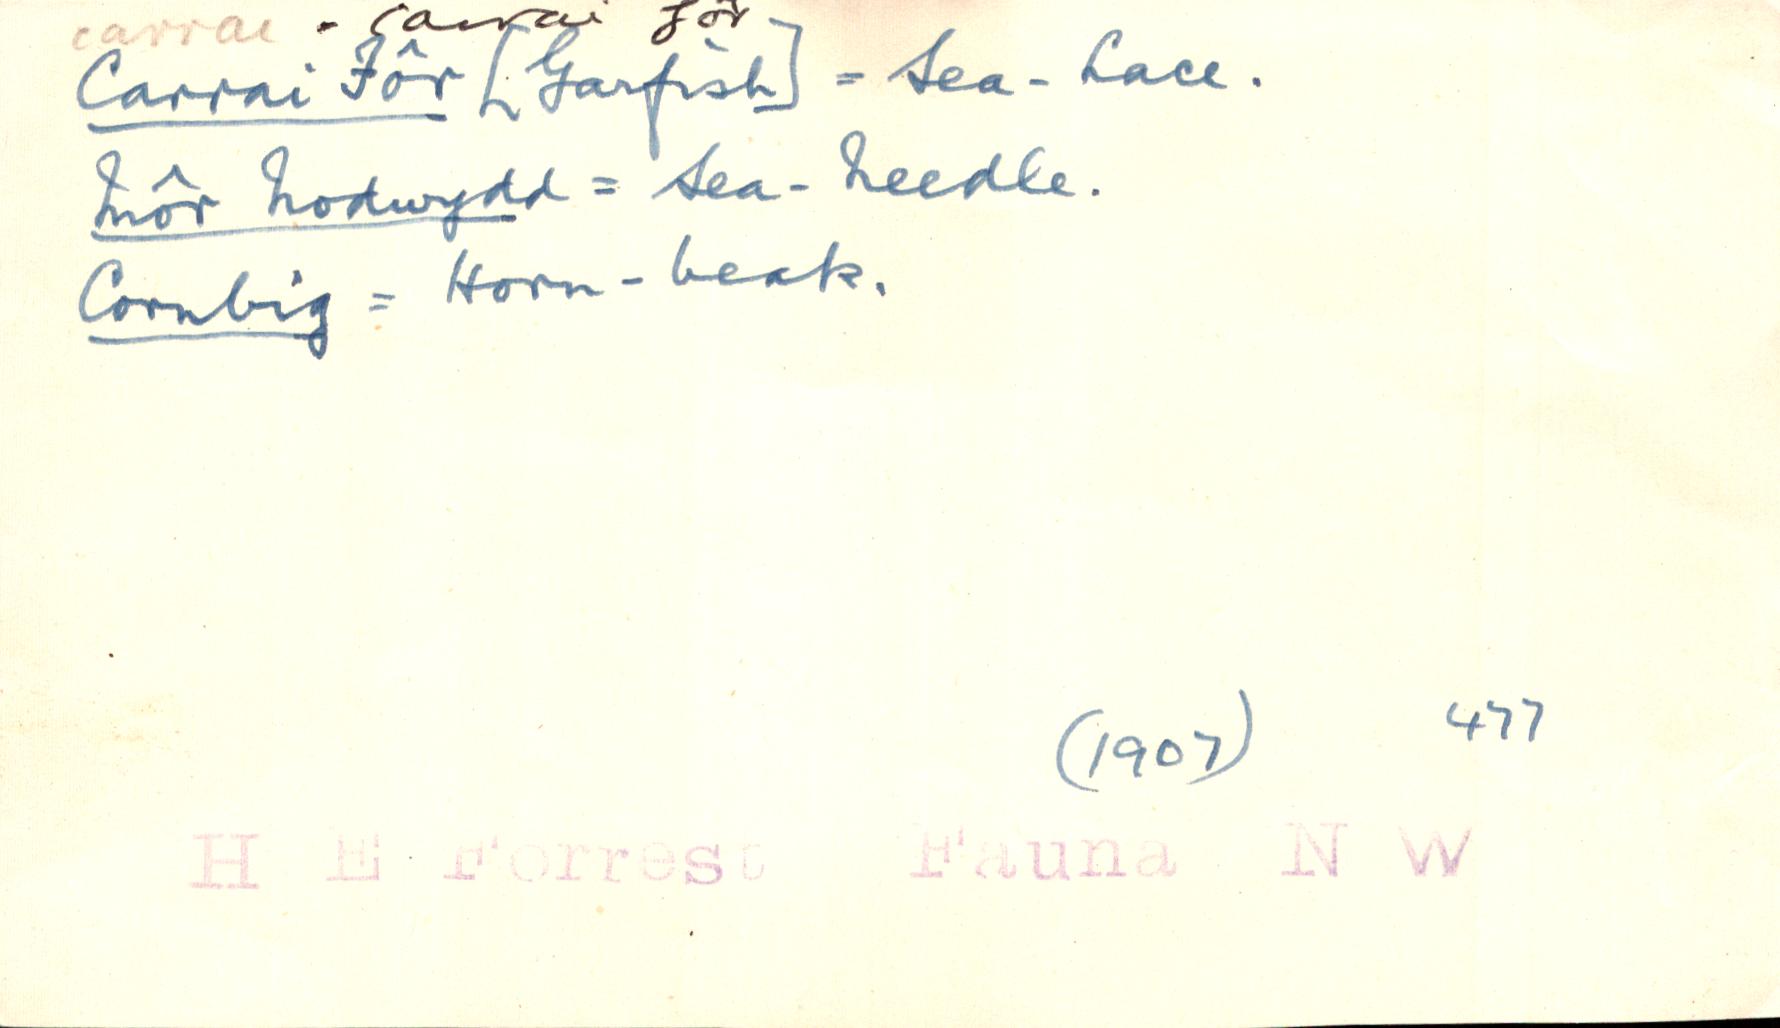 carrai - carrai fôr
Carrai Fôr [Garfish] = Sea-Lace.
Môr Nodwydd = Sea-Needle.
Cornbig = Horn-beak.
(1907) 477
H E Forrest Fauna N W